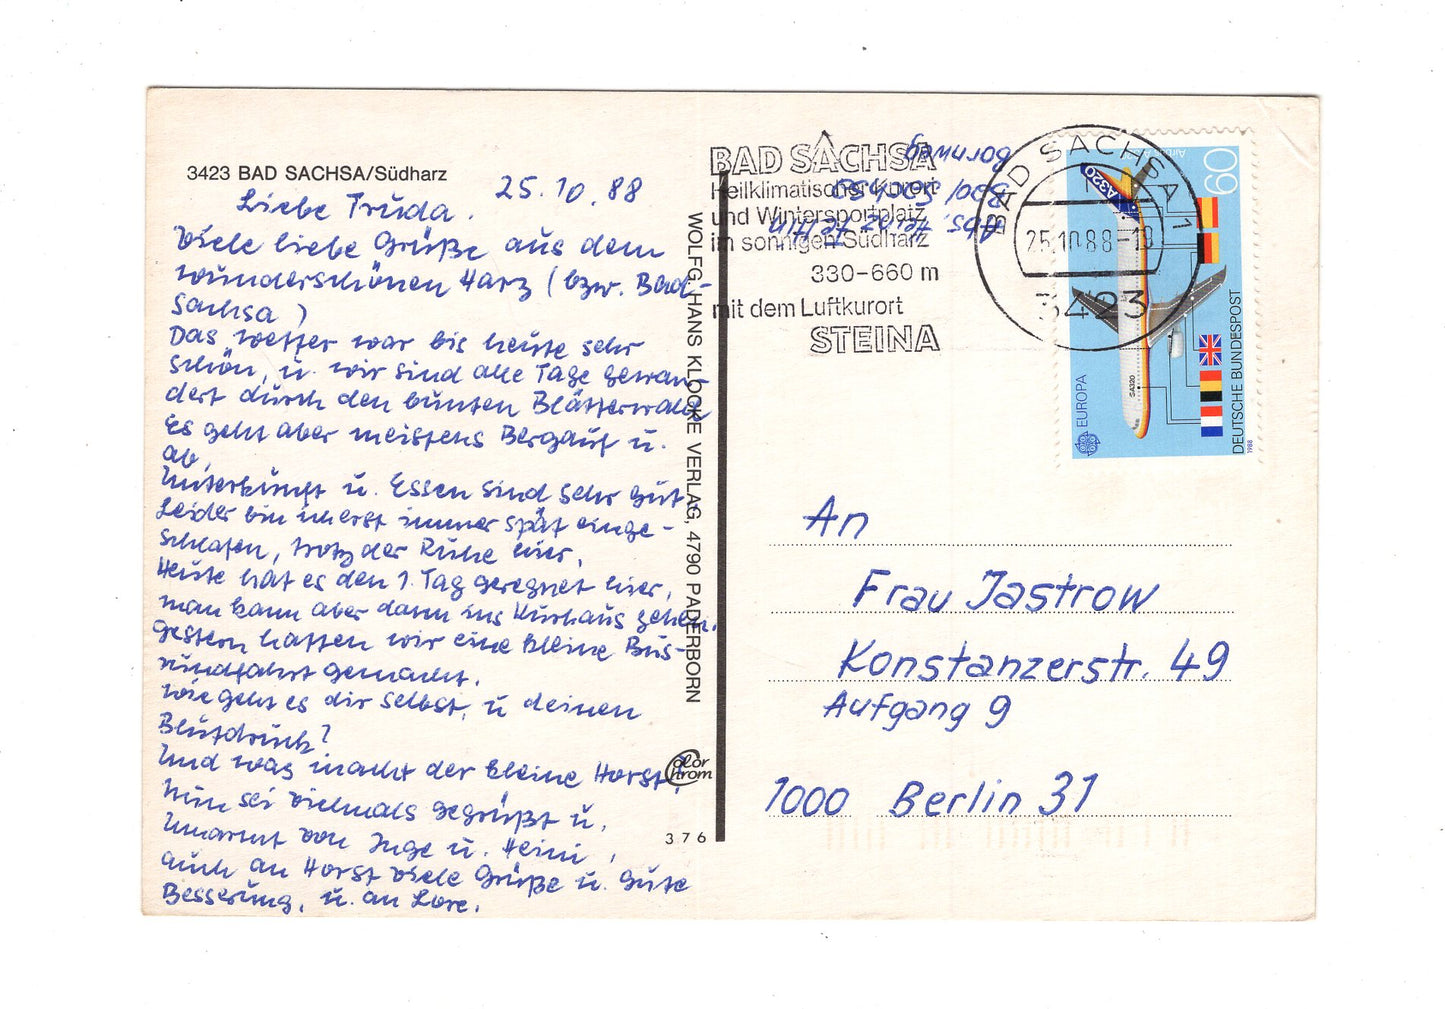 3423 BAD SACHSA/Südharz
25.10.88
Liebe Truda.
Viele liebe Grüße aus dem
wunderschönen Harz (bzw. Bad-
Sachsa)
Das Wetter war bis heute sehr
schön, u. wir sind alle Tage gewan-
dert durch den bunten Blätterwald
Es geht aber meistens Bergauf u.
ab,
Unterkunft u. Essen sind sehr gut,
Leider bin ich erst immer spät einge-
schlafen, trotz der Ruhe hier,
Heute hat es den 1. Tag geregnet hier,
man kann aber dann ins Kurhaus gehen.
gestern hatten wir eine kleine Bus-
rundfahrt gemacht.
wie geht es dir selbst, u deinen
Blutdruck?
Und was macht der kleine Horst?
Nun sei vielmals gegrüßt u.
Umarmt von Inge u. Heini,
auch an Horst viele Grüße u. gute
Besserung, u. an Lore.
WOLFG. HANS KLOCKE VERLAG, 4790 PADERBORN
Color Chrom
376
BAD SACHSA
Heilklimatischer Kurort
und Wintersportplatz
im sonnigen Südharz
330-660 m
mit dem Luftkurort
STEINA
Abs.
Bad Sachsa
BAD SACHSA 1
25.10.88-18
3423
60
A320
SA320
EUROPA
DEUTSCHE BUNDESPOST
1988
An
Frau Jastrow
Konstanzerstr. 49
Aufgang 9
1000 Berlin 31